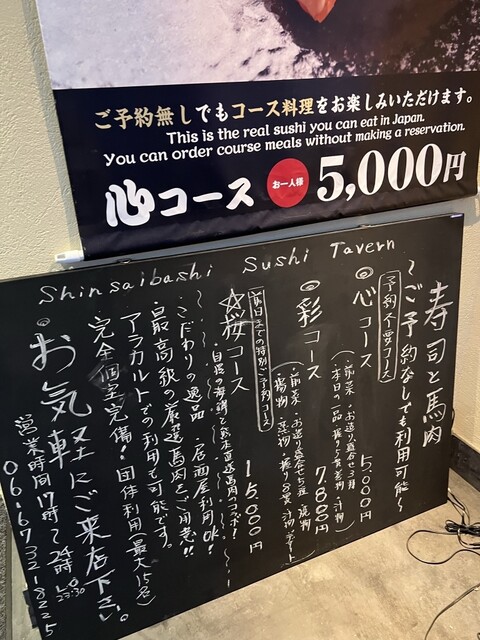 ご予約無しでもコース料理をお楽しみいただけます。
This is the real sushi you can eat in Japan.
You can order course meals without making a reservation.
心コース お一人様 5,000円
Shinsaibashi Sushi Tavern
寿司と馬肉
〜ご予約なしでも利用可能〜
予約不要コース
◎心コース 5,000円
・前菜・お造り盛合せ3種
・本日の一品・握り5貫・巻物・汁物
◎彩コース 7,800円
・前菜・お造り盛合せ5種・焼物
・揚物・蒸物・握り8貫・汁物・デザート
前日までの特別ご予約コース
☆桜コース 15,000円
・自慢の海鮮と熊本直送馬肉のコラボ!
・こだわりの逸品 居酒屋利用OK!
・最高級の厳選馬肉をご用意!!
アラカルトでの利用も可能です。
完全個室完備!!団体利用(最大15名)
◎お気軽にご来店下さい。
営業時間17時〜24時 L.O 23:30
06-6732-8225